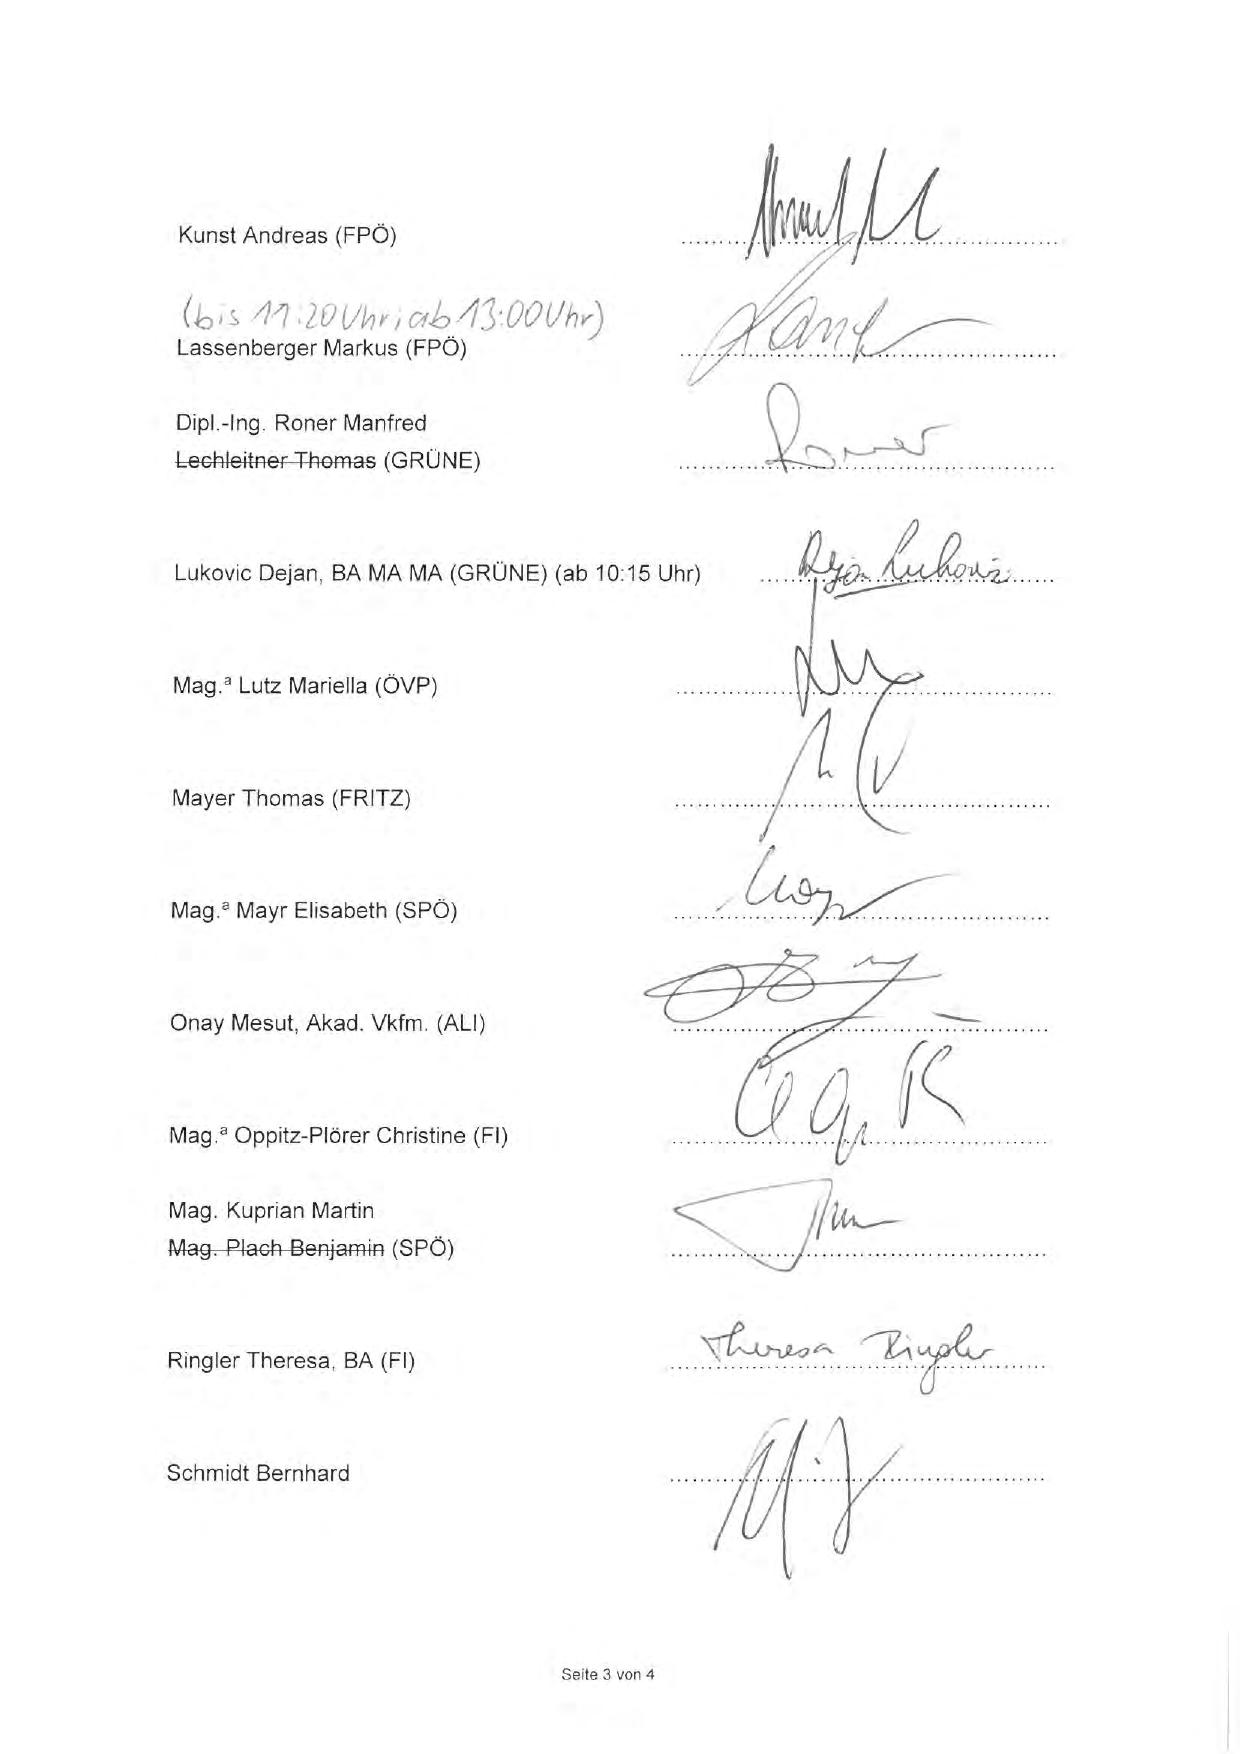 Kunst Andreas (FPÖ)
(bis 11:20 Uhr; ab 13:00 Uhr)
Lassenberger Markus (FPÖ)
Dipl.-Ing. Roner Manfred
Roner
Lechleitner Thomas (GRÜNE)
Lukovic Dejan, BA MA MA (GRÜNE) (ab 10:15 Uhr)
Dejan Lukovic
Mag.ª Lutz Mariella (ÖVP)
Mayer Thomas (FRITZ)
Mag.ª Mayr Elisabeth (SPÖ)
Onay Mesut, Akad. Vkfm. (ALI)
Mag.ª Oppitz-Plörer Christine (FI)
Mag. Kuprian Martin
Mag. Plach Benjamin (SPÖ)
Ringler Theresa, BA (FI)
Theresa Ringler
Schmidt Bernhard
Seite 3 von 4